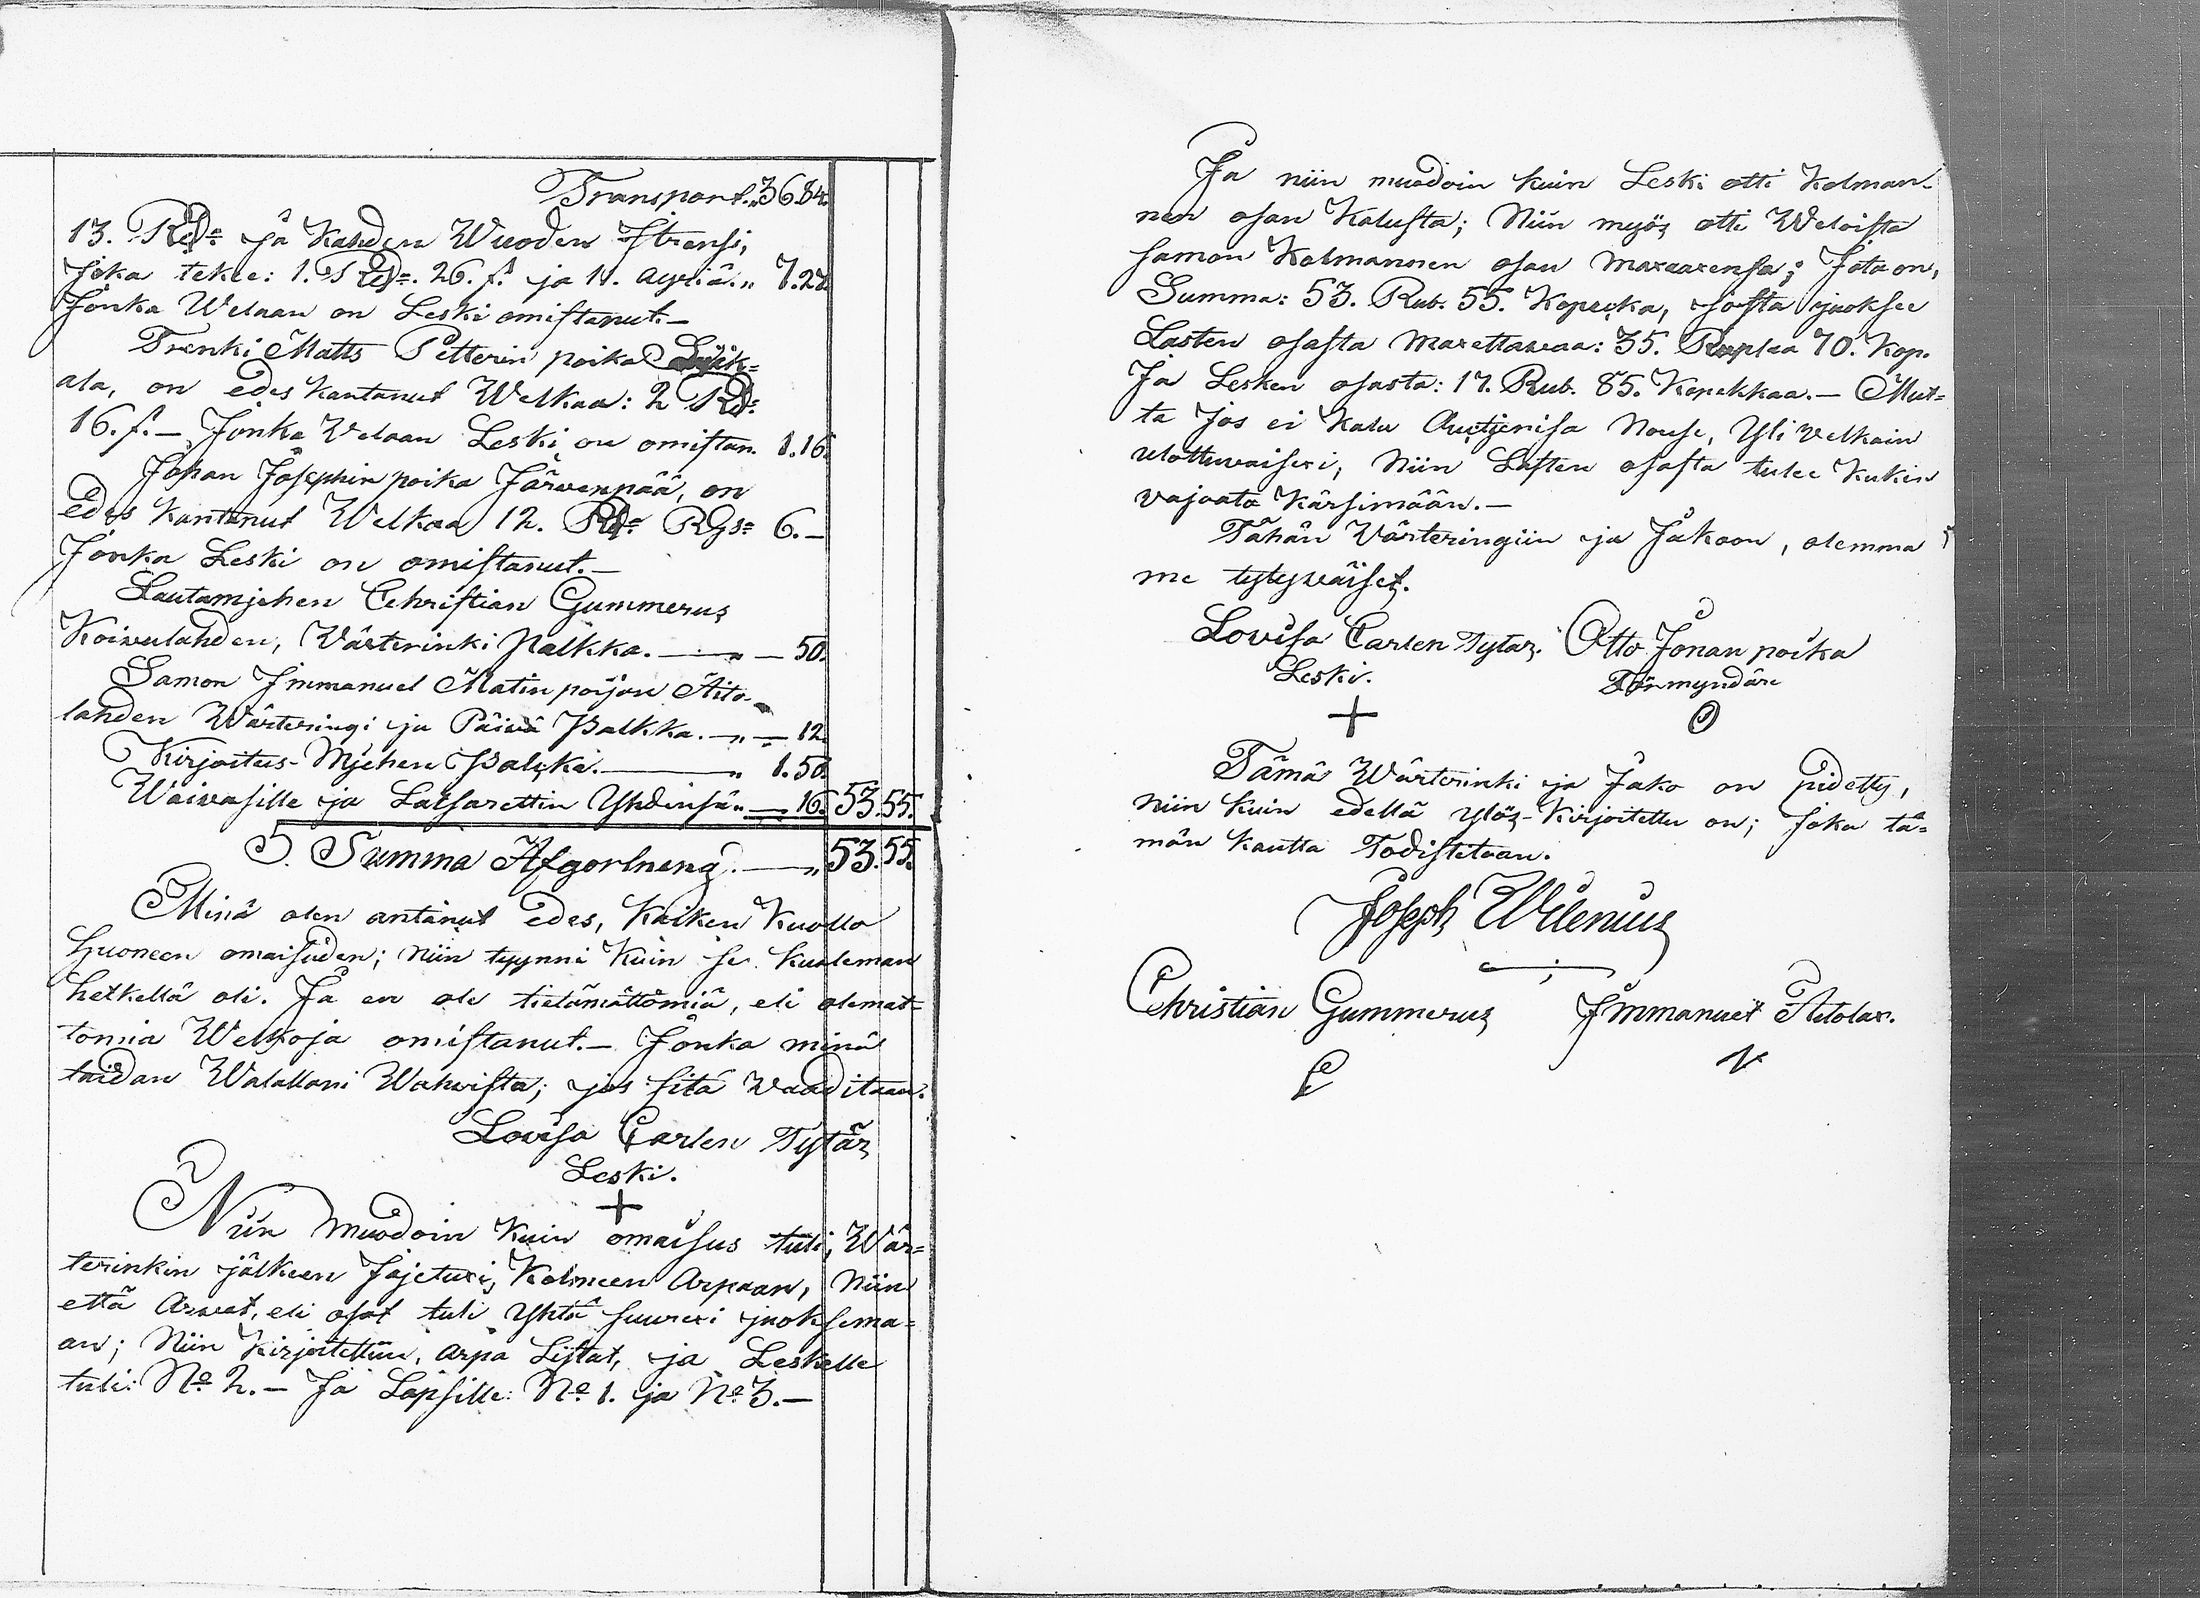 Transport. " 36.84.
13. Rd:r ja Kahden Wuoden Intressi,
Joka tekee: 1. Rd:r 26. f. ja 11. äyriä. " 7.27.
Jonka Welaan on Leski omistanut. —
Trenki Matts Petterin poika
ala, on edes kantanut Welkaa: 2 Rd:r
16. f. — Jonka Welaan Leski on omistan. 1.16.
Johan Josephin poika Järwenpää, on
edes kantanut Welkaa 12. Rd:r RGs: 6. —
Jonka Leski on omistanut. —
Lautamjehen Cehristian Gummerus
Koiwulahden, Wärterinki Palkka. — " — 50.
Samon Immanuel Matin pojan Aito-
lahden Wärteringi ja Päiwä Palkka. — " — 12.
Kirjoitus-Mjehen Palcka. — " 1.50.
Waiwasille ja Latsarettin Yhdensä " — 16. 53.55.
S. Summa Afgorhneng. — " 53.55.
Minä olen antanut edes, Kaiken Kuollo
huoneen omaisuden; niin tyynni Kuin se Kuoleman
hetkellä oli. Ja en ole tietämättömiä, eli olemat-
tomia Welkoja omistanut. — Jonka minä
taidan Walallani Wahwista; jos sitä waaditaan.
Lovisa Carlen Tytär
Leski.
+
Niin muodoin Kuin omaisus tuli, Wär=
terinkin jälkeen Jajetuxi, Kolmeen Arpaan, Niin
että Arwat, eli osat tuli Yhtä suurexi juoksema=
an; Niin Kirjoitettiin, Arpa Listat, ja Leskelle
tuli: No 2. — Ja Lapsille: No 1. ja No 3. —
Ja niin muodoin kuin Leski otti Kolman-
nen osan Kalusta; Niin myös otti Weloista
samon Kolmannen osan Maxaaxensa; Jota on,
Summa: 53. Rub. 55. Kopecka, josta juoksee
Lasten osasta Maxettawaa: 35. Ruplaa 70. Kop.
Ja Lesken osasta: 17. Rub. 85. Kopekkaa. — Mut=
ta Jos ei Kalu Auctjenisa Nouse, Yli Velkain
ulottuwaisexi, Niin Lasten osasta tulee Kukin
vajaata Kärsimään. —
Tähän Wärteringiin ja Jakoon, olemma
me tytywäiset.
Lovisa Carlen Tytär. Otto Jonan poika
Leski. Förmyndäre
+ O
Tämä Wärterinki ja Jako on pidetty,
niin kuin edellä Ylös-Kirjoitettu on; joka tä=
män kautta Todistetaan.
Joseph Wilenius
Christian Gummerus Immanuel Aitolax.